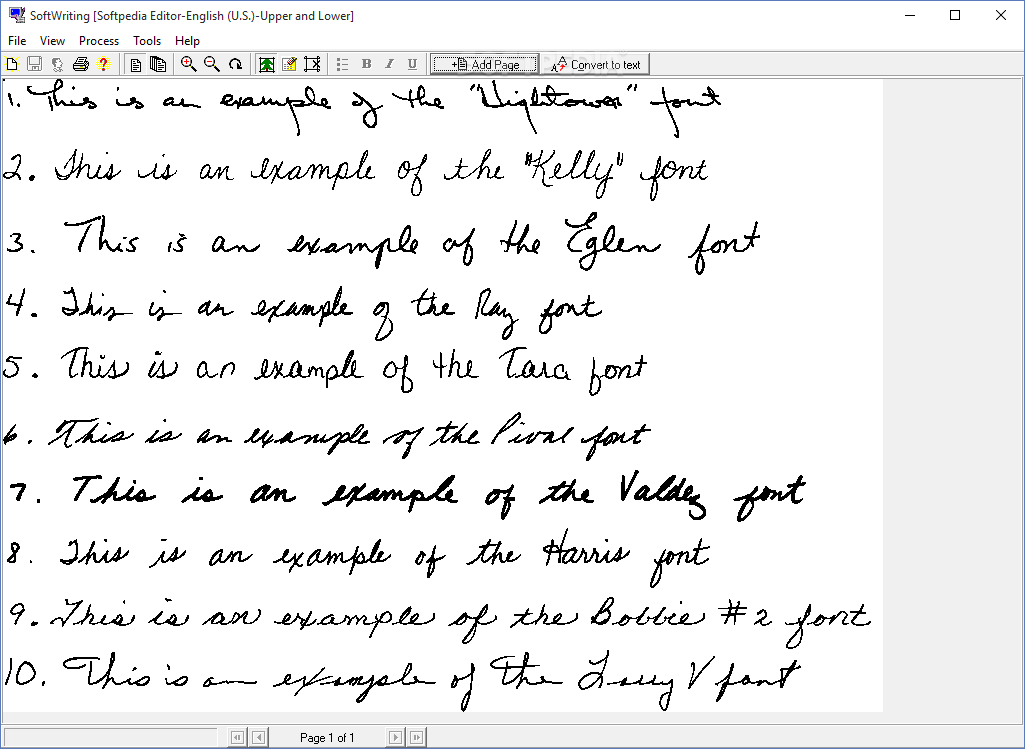 SoftWriting [Softpedia Editor-English (U.S.)-Upper and Lower]
File View Process Tools Help
B I U Add Page Convert to text
1. This is an example of the "Hightower" font
2. This is an example of the "Kelly" font
3. This is an example of the Eglen font
4. This is an example of the Ray font
5. This is an example of the Tara font
6. This is an example of the font
7. This is an example of the Valdez font
8. This is an example of the Harris font
9. This is an example of the Bobbie #2 font
10. This is an example of the Larry V font
Page 1 of 1